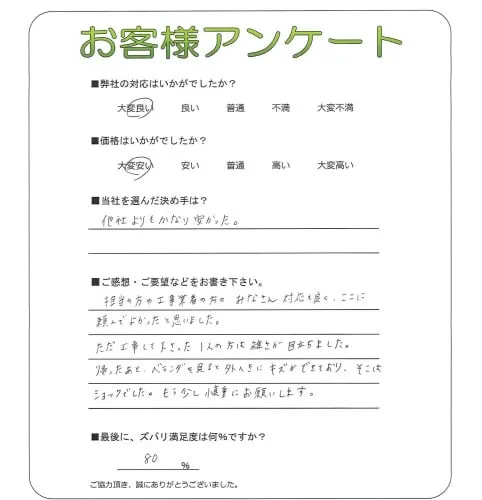 お客様アンケート
■弊社の対応はいかがでしたか?
大変良い 良い 普通 不満 大変不満
■価格はいかがでしたか?
大変安い 安い 普通 高い 大変高い
■当社を選んだ決め手は?
他社よりもかなり安かった。
■ご感想・ご要望などをお書き下さい。
担当の方や工事業者の方の みなさん 対応も良く、ここに
頼んでよかったと思いました。
ただ工事して下さった1人の方は雑さが目立ちました。
帰ったあと、ベランダを見ると外へきに キズができており、そこは
ショックでした。もう少し慎重にお願いします。
■最後に、ズバリ満足度は何%ですか?
80 %
ご協力頂き、誠にありがとうございました。